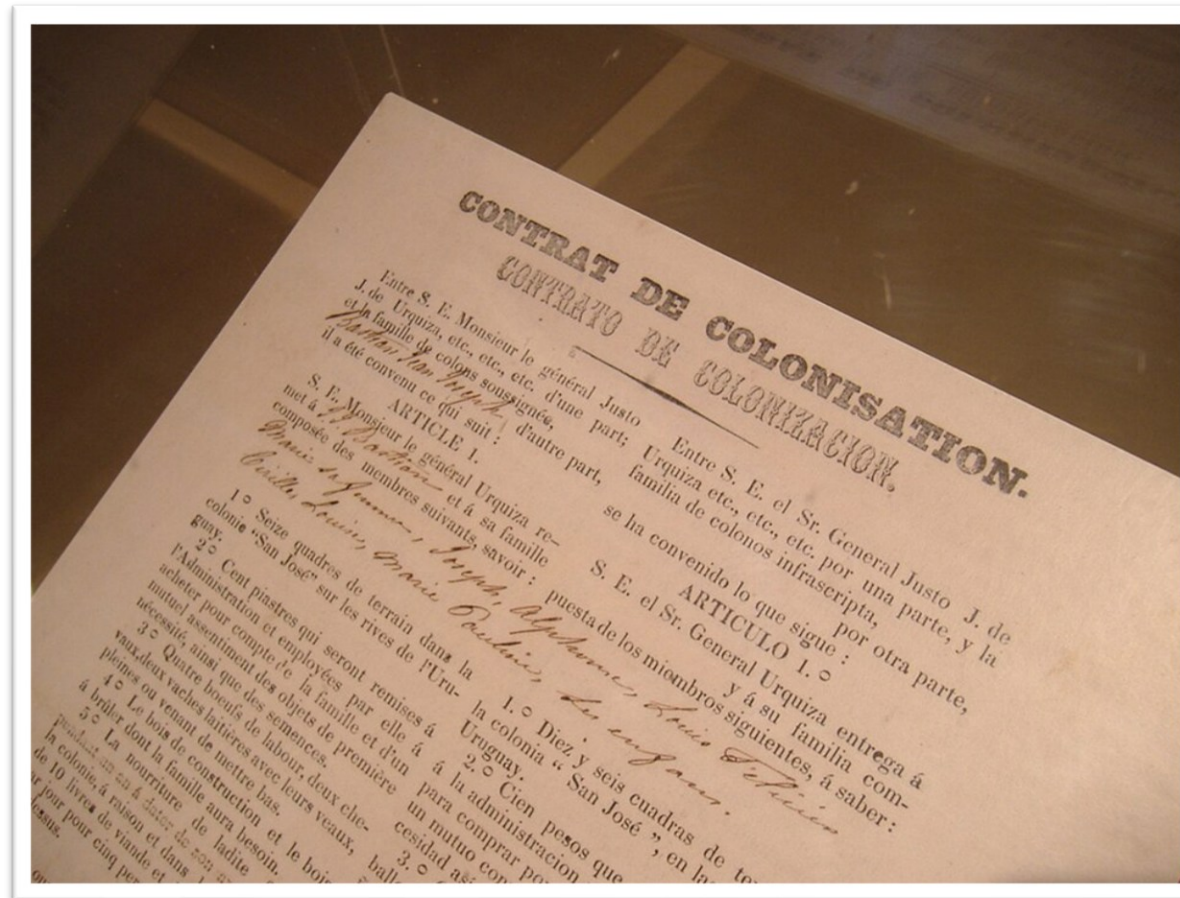 CONTRAT DE COLONISATION.
CONTRATO DE COLONIZACION.
Entre S. E. Monsieur le général Justo
J. de Urquiza, etc., etc., etc. d'une part;
et la famille de colons soussignée,
Bastian Jean Joseph, d'autre part,
il a été convenu ce qui suit :
ARTICLE 1.
S. E. Monsieur le général Urquiza re-
met á Bastian et á sa famille
composée des membres suivants, savoir :
Marie sa femme, Joseph, Alphonse, Louis
Cirille, Louise, Marie Pauline, ses enfans.
1º Seize quadres de terrain dans la
colonie "San José" sur les rives de l'Uru-
guay.
2º Cent piastres qui seront remises á
l'Administration et employées par elle á
acheter pour compte de la famille et d'un
mutuel assentiment des objets de première
nécessité, ainsi que des semences.
3º Quatre boeufs de labour, deux che-
vaux, deux vaches laitières avec leurs veaux,
pleines ou venant de mettre bas.
4º Le bois de construction et le bois
á brûler dont la famille aura besoin.
5º La nourriture de ladite
pendant un an á dater de son
la colonie, á raison et dans
de 10 livres de viande et
jour pour cinq
dessus.
Entre S. E. el Sr. General Justo J. de
Urquiza etc., etc., etc. por una parte, y la
familia de colonos infrascripta,
por otra parte,
se ha convenido lo que sigue :
ARTICULO 1.º
S. E. el Sr. General Urquiza entrega á
y á su familia com-
puesta de los miembros siguientes, á saber :
1.º Diez y seis cuadras de
la colonia " San José ", en la
Uruguay.
2.º Cien pesos que
á la administracion
para comprar por
un mutuo
cesidad
3.º